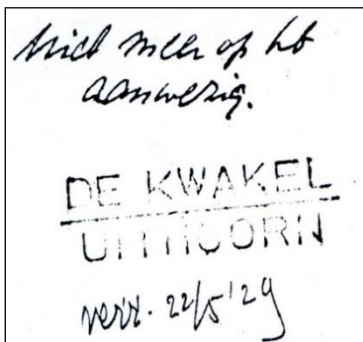 Niet meer op hb
aanwezig.
DE KWAKEL
UITHOORN
verz. 22/5 '29